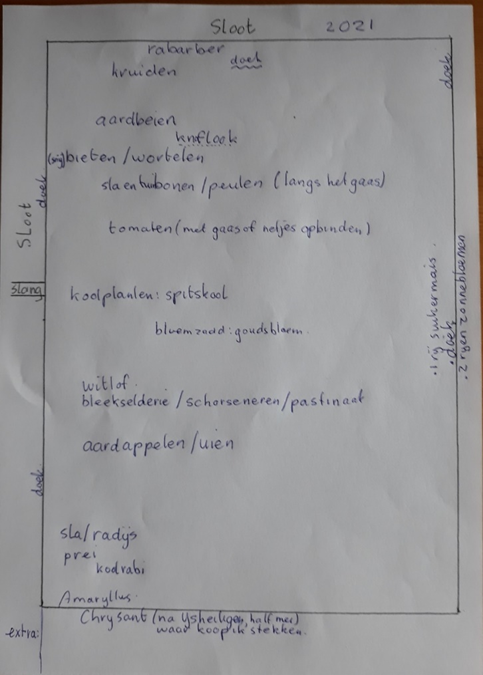 Sloot 2021
rabarber
doek
kruiden
doek
aardbeien
knoflook
(snij)bieten/wortelen
doek
sla en tuinbonen/peulen (langs het gaas)
Sloot
tomaten (met gaas of netjes opbinden)
slang
koolplanten: spitskool
bloemzaad: goudsbloem.
.1 rij suikermais.
.doek
.2 rijen zonnebloemen
witlof.
bleekselderie/schorseneren/pastinaak
aardappelen/uien
doek
sla/radijs
prei
koolrabi
Amaryllus.
extra:
Chrysant (na Ysheiligen, half mei)
waar koop ik stekken.